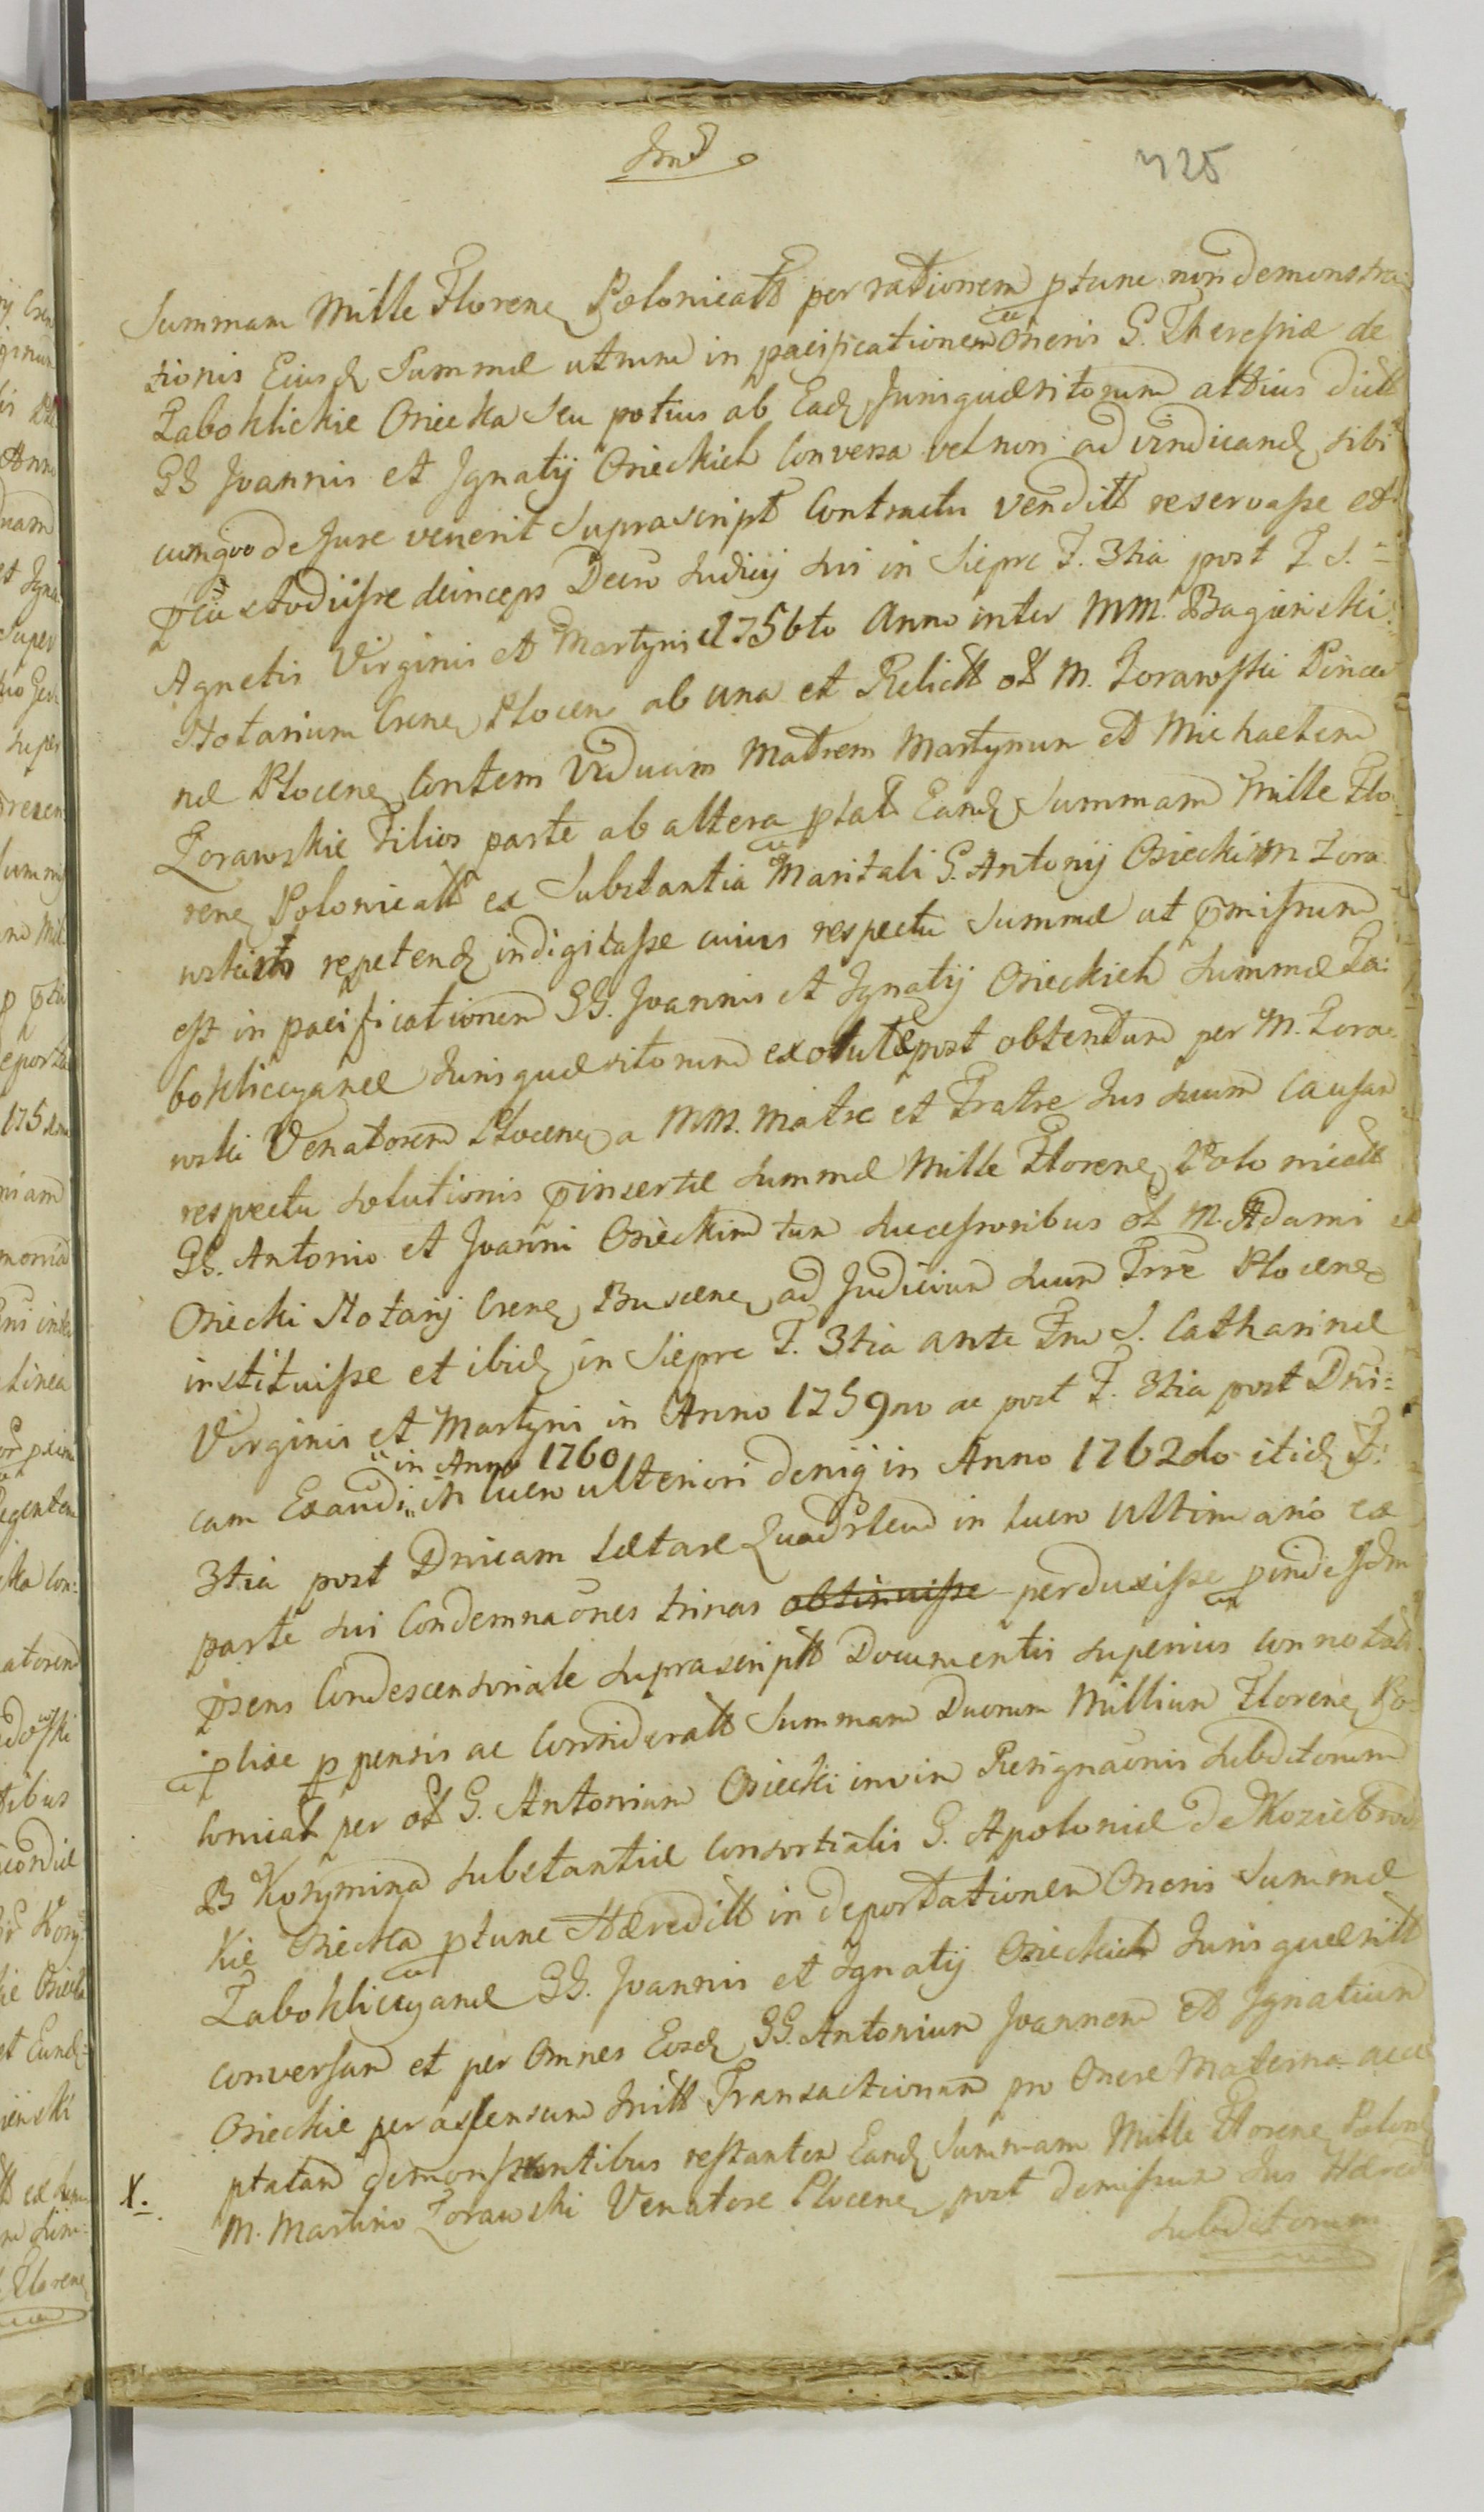 325
Summam Mille Florenz Polonicatt per rationem ptunc non demonstra
tionis Eiusd Summæ utrum in pacificationem Oneris G. Theressiæ de
Zaboklickie Osiecka seu potius ab Ead Jurisquæsitorum altius dictt
GG Joannis et Ignatij Osieckich conversa vel non ad vindicand sibi
cum quo de Jure venerit Suprascript Contractu Venditt reservasse et
pcustodiisse deinceps Decro Judicij sui in Sieprc F. 3tia post F. S.
Agnetis Virginis et Martyris 1756to Anno inter MM. Bagienski
Notarium Crenz Plocenz ab una et Relictt ol M. Zorawski Pincer
næ Plocenz Contem Viduam Matrem Martynum et Michaelem
Zorawskie Filios parte ab altera plat Eand Summam Mille Flo
renz Polonicatt ex Substantia Maritali G. Antonij Osiecki M Zora
wskim repetend indigitasse cuius respectu Summæ ut pmissum
est in pacificationem GG. Joannis et Ignatij Osieckich Summæ Za:
bokliccyanæ Jurisquæsitorum exolutæ post obtentum per M. Zora
wski Venatorem Plocenz a MM. Matre et Fratre Jus suum Causam
respectu solutionis pinsertæ Summæ Mille Florenz Polonicatt
GG. Antonio et Joanni Osieckim tum Successoribus ol M. Adami
Osiecki Notarij Crenz Buscenz ad Judicium suum Trre Plocenz
instituisse et ibid in Sieprc F. 3tia ante Fm S. Catharinæ
Virginis et Martyris in Anno 1759no ac post F. 3tia post Dni=
in Anno 1760
cam Exaudi in lucro ulteriori deniq in Anno 1762do itid F:
3tia post Dnicam Lætare Quadrlem in lucro ultimario ex
parte sui Condemnaones trinas obtinuisse perduxisse pinde Idm
psens Condescensoriale suprascriptt Documentis superius connotatt
plixe ppensis ac Consideratt Summam Duorum Millium Florenz Po=
lonicat per ol G. Antonium Osiecki in vim Resignaonis Subditorum
B Korzymina substantiæ Consortialis G. Apoloniæ de Koziebrodz
kie Osiecka ptunc Hæreditt in deportationem Oneris Summæ
Zabokliccyanæ GG. Joannis et Ignatij Osieckich Jurisquæsitt
conversam et per Omnes Eosd GG. Antonium Joannem et Ignatium
Osieckie per assensum Initt Transactionum pro Onere Materna acce
ptatam demonstrantibus restantem Eand Summam Mille Florenz Polon
X. M. Martino Zorawski Venatore Plocenz post demissum Jus Hæred
subditorum